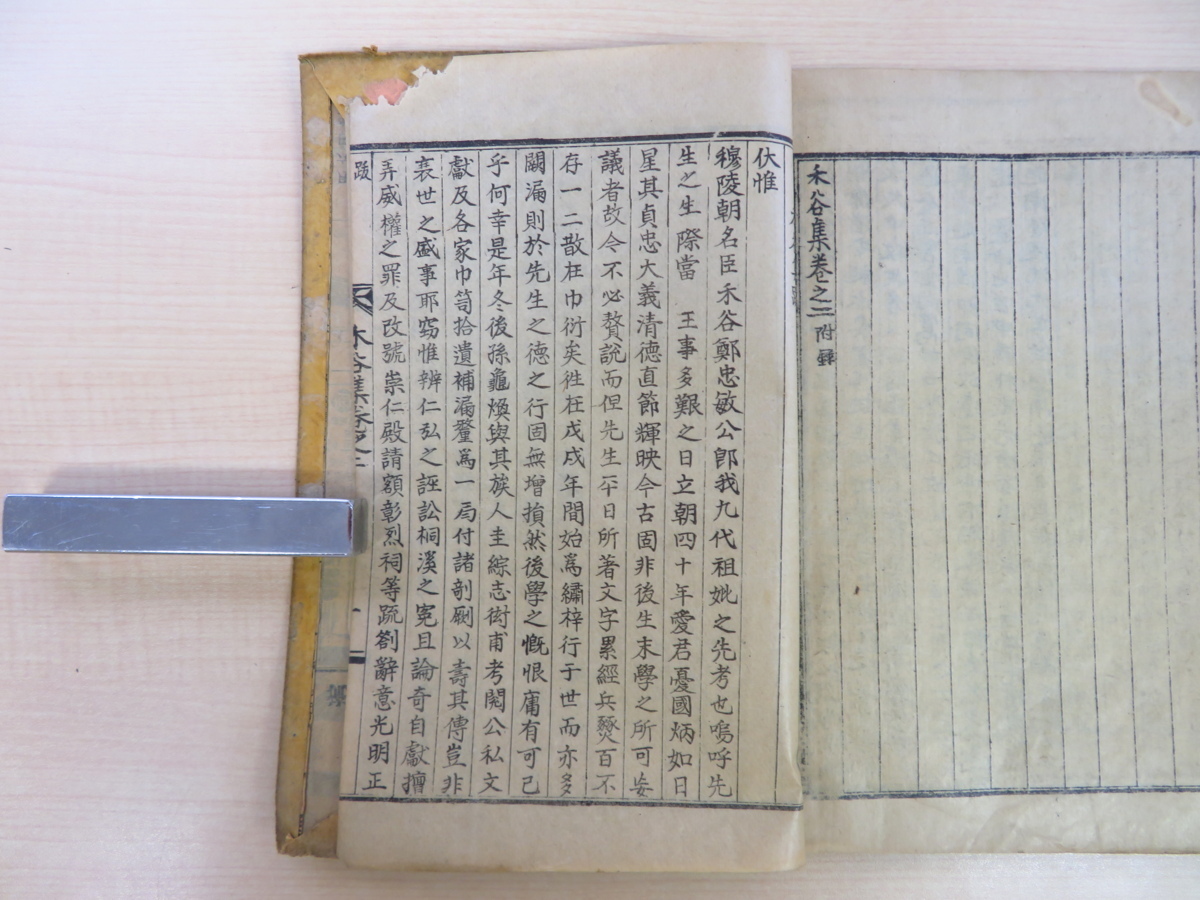 禾谷集卷之三 附錄
伏惟
穆陵朝名臣禾谷鄭忠敏公郎我九代祖妣之先考也嗚呼先
生之生際當 王事多艱之日立朝四十年愛君憂國炳如日
星其貞忠大義清德直節輝映今古固非後生末學之所可妄
議者故今不必贅說而但先生平日所著文字累經兵燹百不
存一二散在巾衍矣徃在戊戌年間始爲繡梓行于世而亦多
闕漏則於先生之德之行固無增損然後學之慨恨庸有可已
乎何幸是年冬後孫龜煥與其族人圭綜志衒甫考閱公私文
獻及各家巾笥拾遺補漏釐爲一局付諸剞劂以壽其傳豈非
衰世之盛事耶窃惟辨仁弘之誣訟桐溪之寃且論奇自獻擅
弄威權之罪及改號崇仁殿請額彰烈祠等疏劄辭意光明正
跋
禾谷集卷之